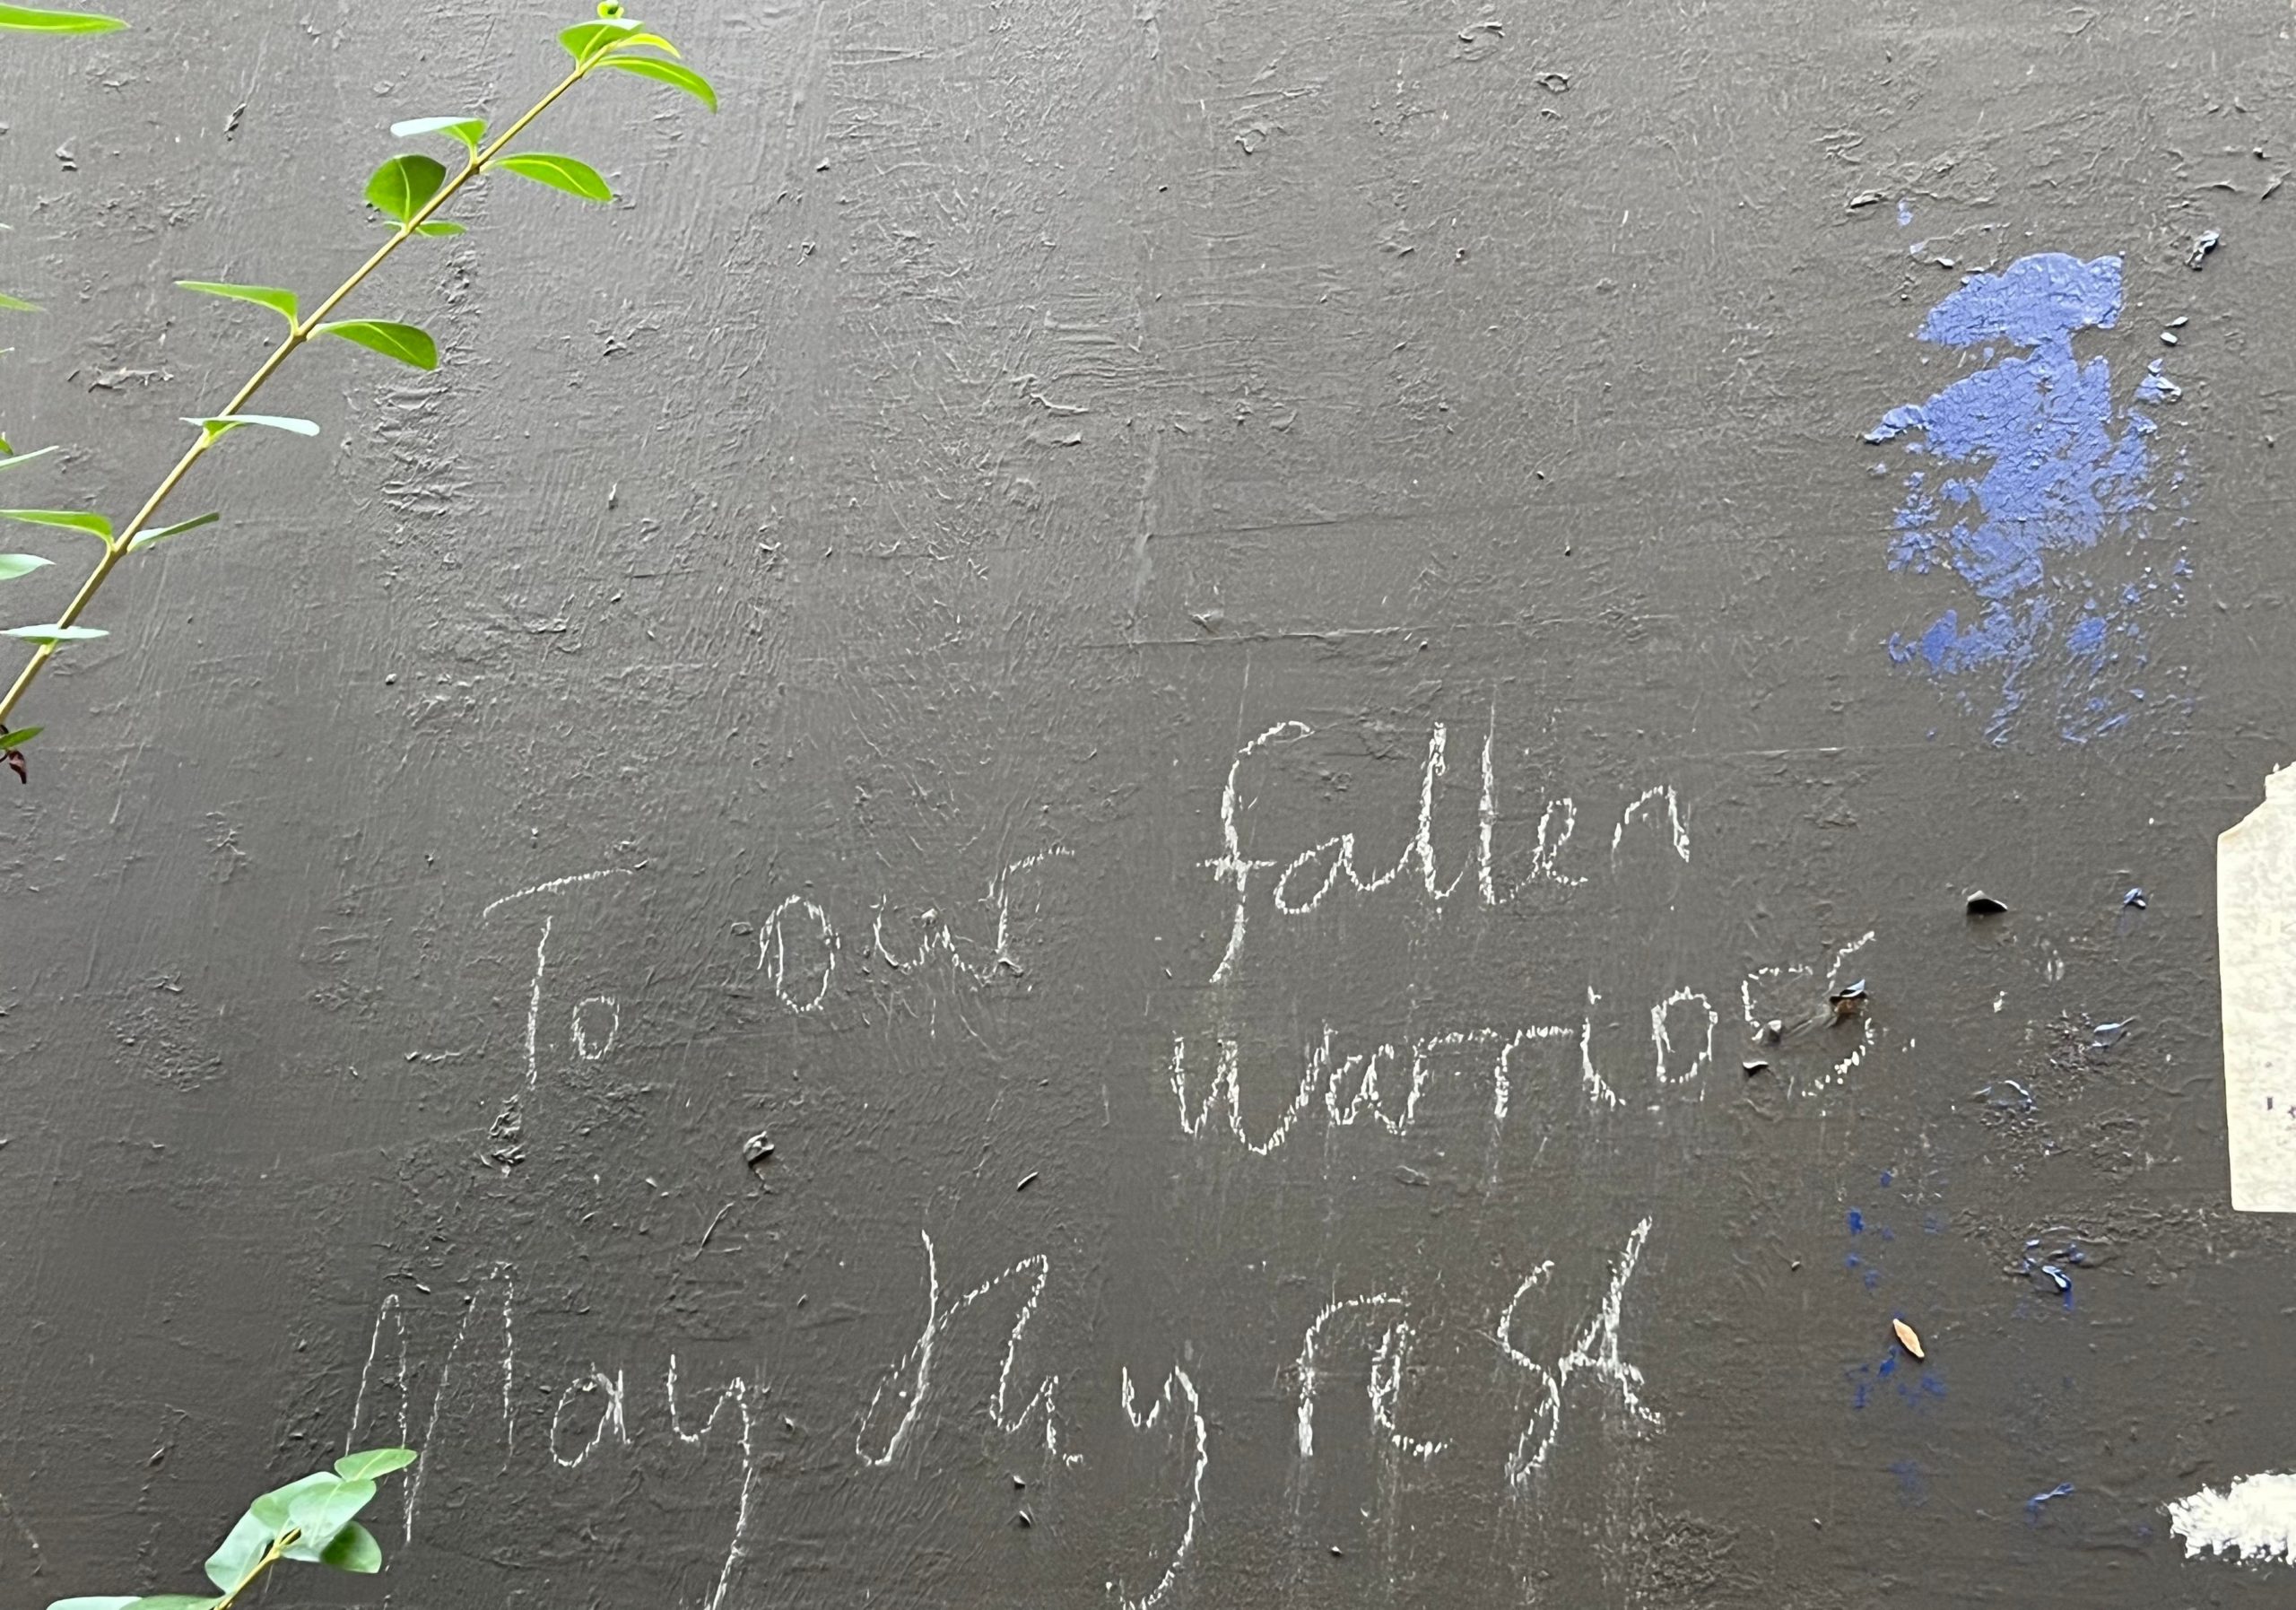 To our fallen
warriors
May they rest